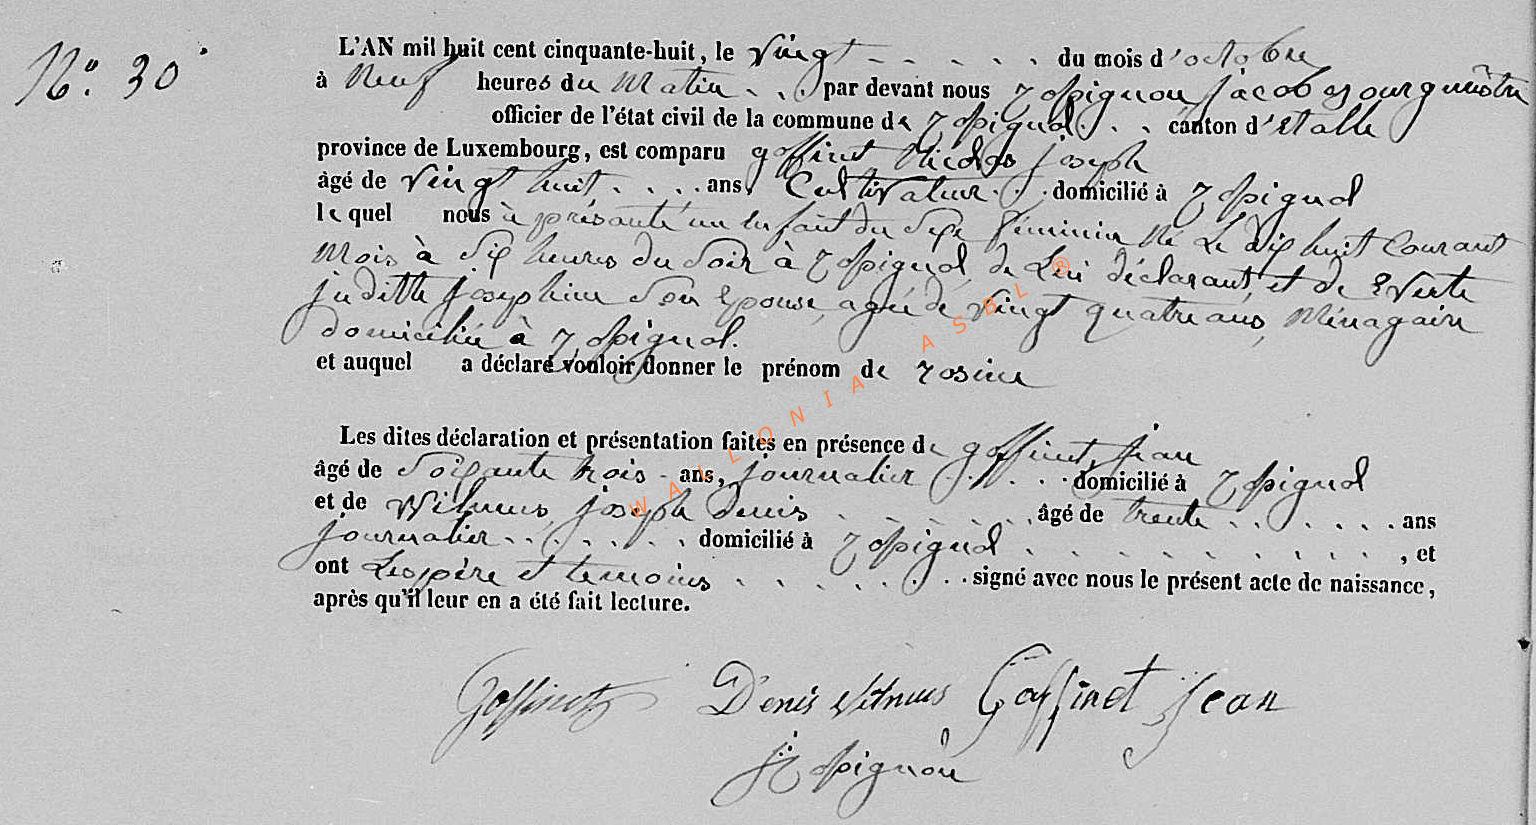 N° 30
L'AN mil huit cent cinquante-huit, le Vingt du mois d'octobre
à Neuf heures du Matin par devant nous rossignon jacob bourguéstre
officier de l'état civil de la commune de rossignol canton d'étalle
province de Luxembourg, est comparu goffinet Nicolas joseph
âgé de Vingt huit ans, Cultivateur domicilié à rossignol
lequel nous à présanté un enfant du sexe féminin Né Le dix huit Courant
Mois à Six heures du Soir à rossignol de Lui déclarant et de
juditte josephine Son Epouse, agée de Vingt quatre ans, Ménagaire
domiciliée à rossignol.
et auquel a déclaré vouloir donner le prénom de rosine
Les dites déclaration et présentation faites en présence de goffinet, jean
âgé de Soixante trois ans, journalier domicilié à rossignol
et de Wilmus joseph denis âgé de trente ans
journalier domicilié à rossignol, et
ont Les père et temoins signé avec nous le présent acte de naissance,
après qu'il leur en a été fait lecture.
Goffinet Denis Wilmus Goffinet Jean
J rossignon
WALLONIA ASBL ®